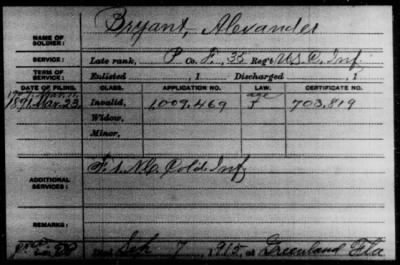 Bryant, Alexander
NAME OF SOLDIER:
SERVICE: Late rank, P Co. F, 35 Reg't U.S.C. Inf.
TERM OF SERVICE: Enlisted , 1 Discharged , 1
DATE OF FILING. CLASS. APPLICATION NO. LAW. CERTIFICATE NO.
1891 Mar. 23 Invalid, 1.009.469 703.819
Widow,
Minor,
F. 1. N.C. Cold. Inf.
ADDITIONAL SERVICES:
REMARKS:
Died Sep 7, 1915, at Greenland Fla